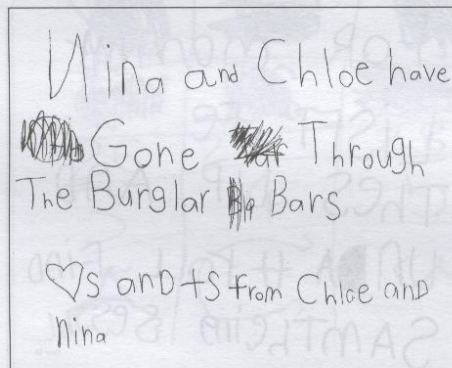 Nina and Chloe have
Gone Through
The Burglar Bars
♡s and +s from Chloe and
Nina